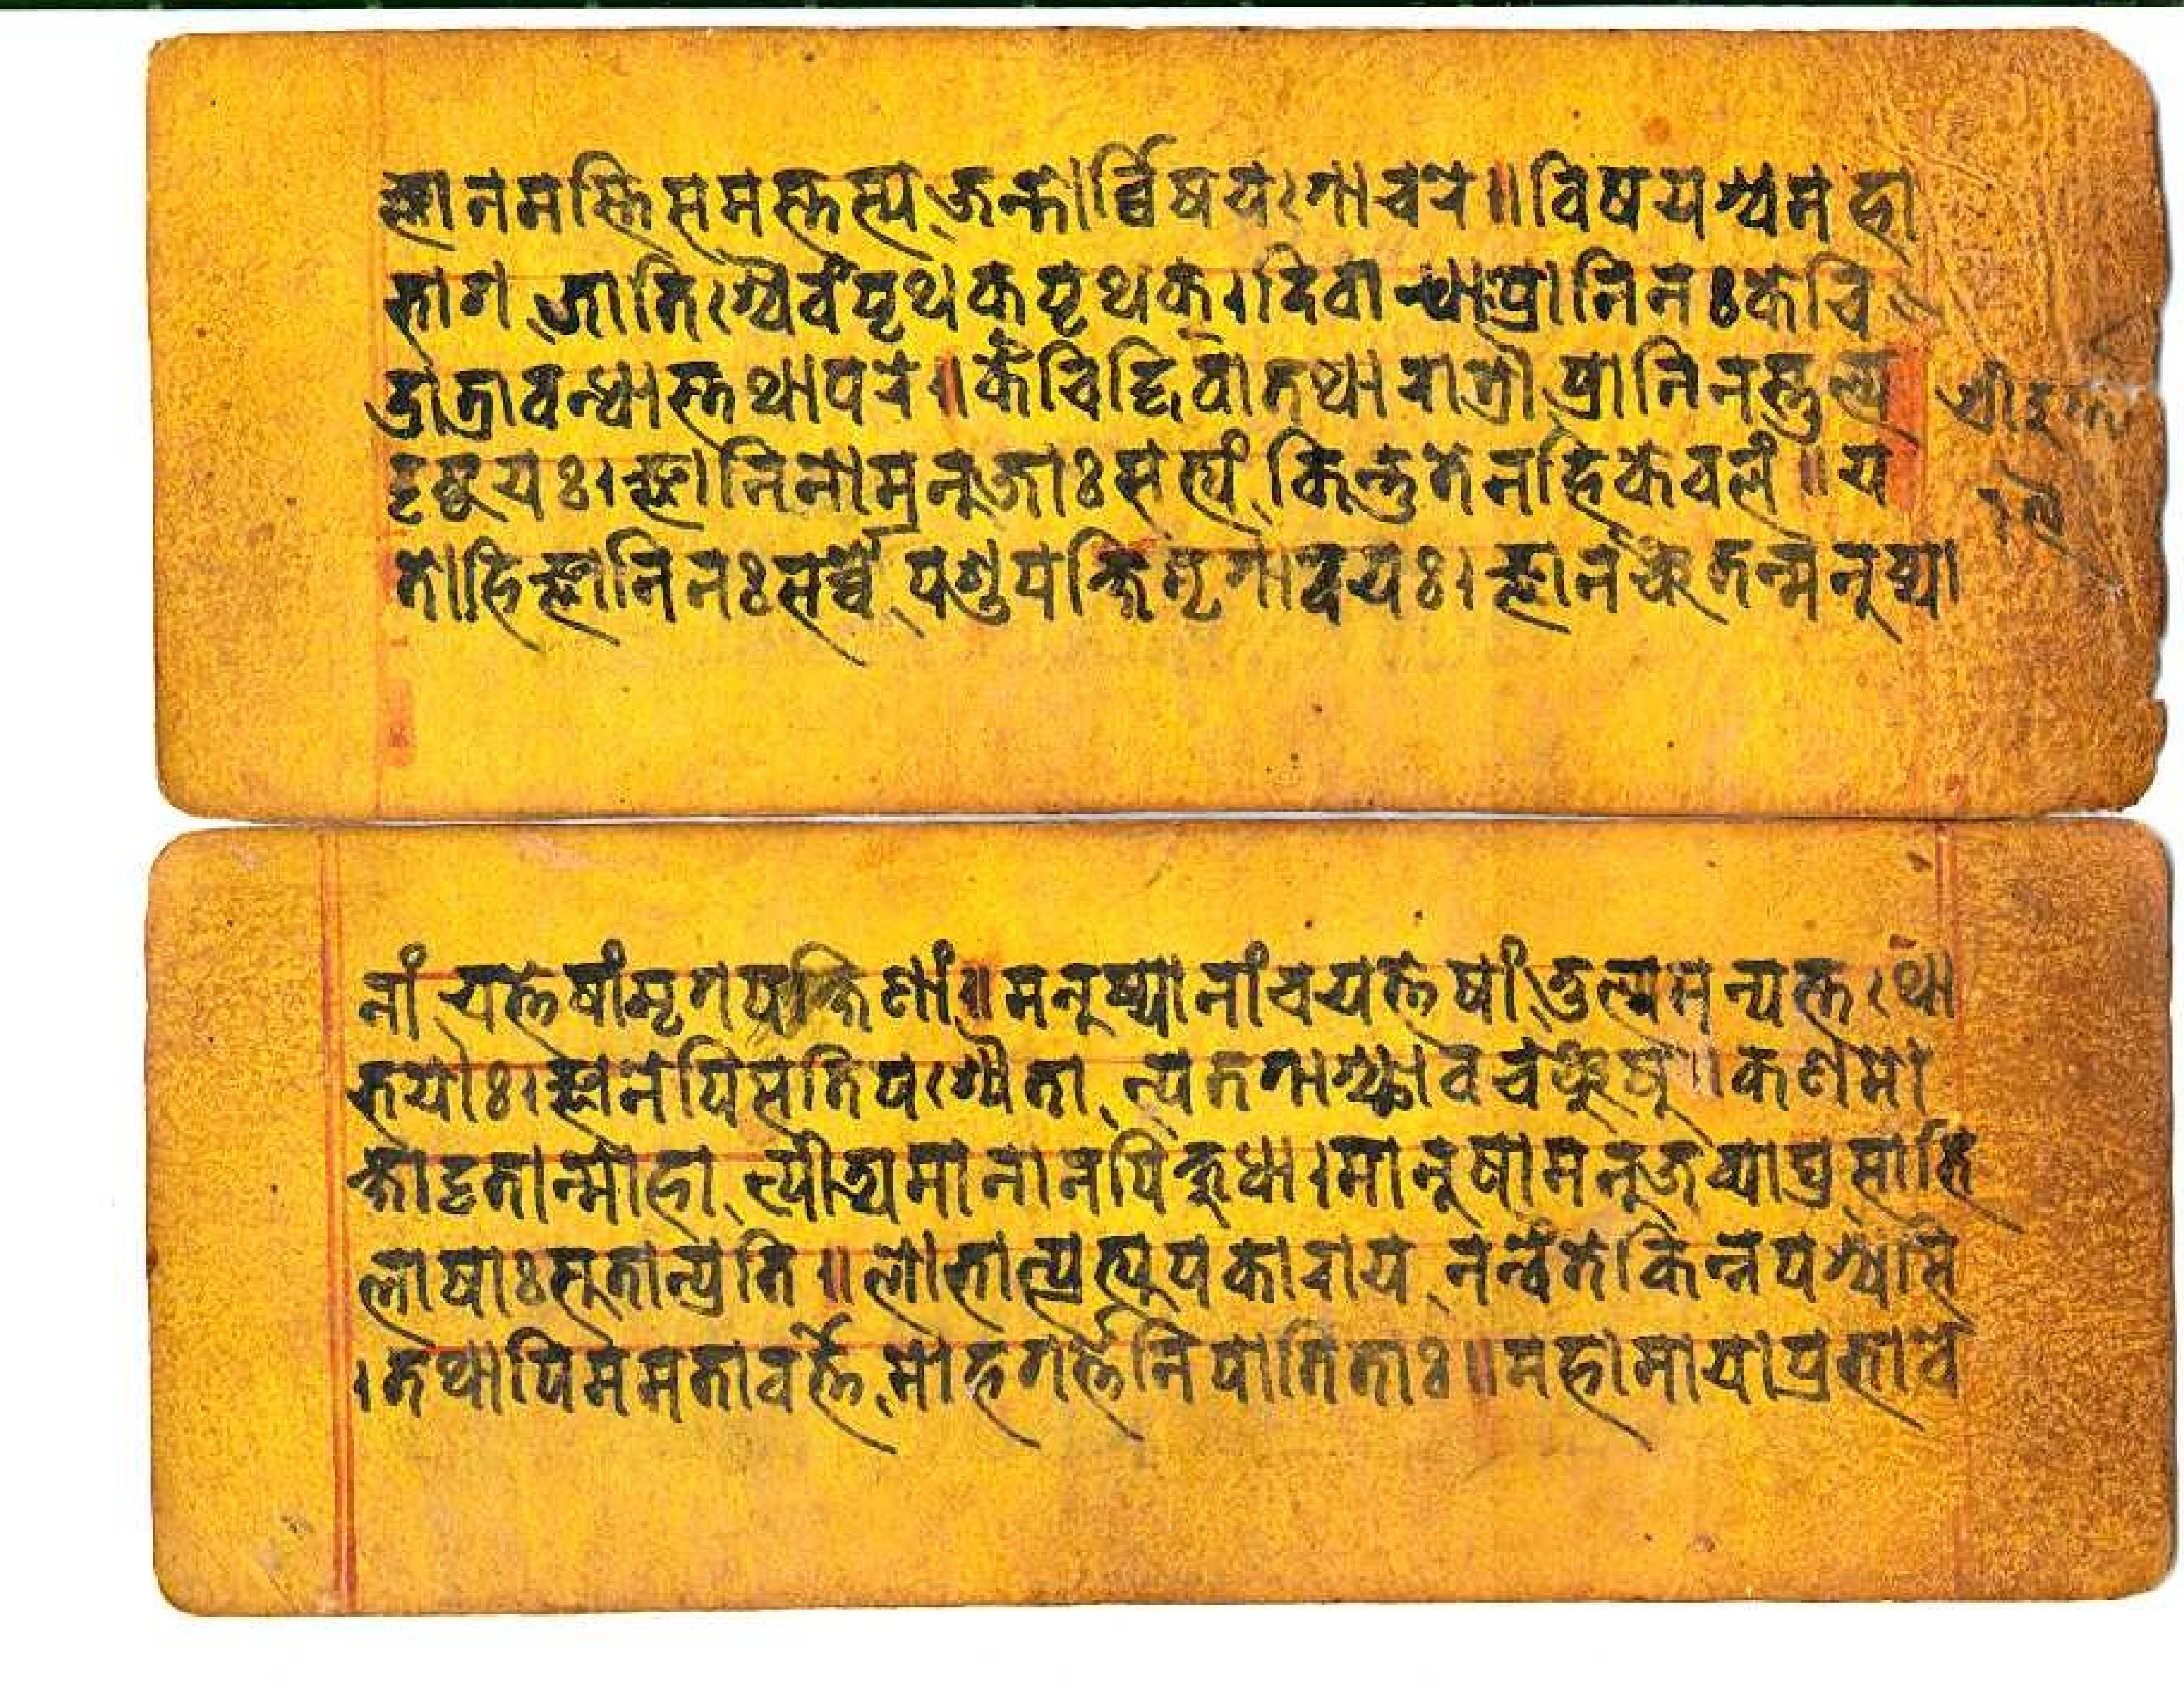 ज्ञानमस्ति समस्तस्य जन्तोर्व्विषयगोचरे॥विषयश्चमहा
भाग जातिश्चैवं पृथक्पृथक्।दिवान्धाप्रानिनःकेचि
द्रात्रावन्धास्तथापरे॥केचिद्दिवातथारात्रौ प्रानिनस्तुल्य
दृष्टयः।ज्ञानिनोमनुजाःसत्यं किन्तुतेनहिकेवलं॥य
तोहिज्ञानिनःसर्व्वे पशुपक्षिमृगादयः।ज्ञानंचतन्मनुष्या
नां यत्तेषांमृगपक्षिणां॥मनुष्यानांचयत्तेषां तुल्यमन्यत्तथो
भयोः।ज्ञानेपिसतिपश्यैतान्पतगाञ्छावचञ्चुषु॥कणमो
क्षादृतान्मोहात्पीड्यमानानपिक्षुधा।मानुषामनुजव्याघ्रसाभि
लाषाःसुतान्प्रति॥लोभात्प्रत्युपकाराय नन्वेतेकिन्नपश्यसि
।तथापिममतावर्त्ते मोहगर्त्तेनिपातिताः॥महामायाप्रभावे